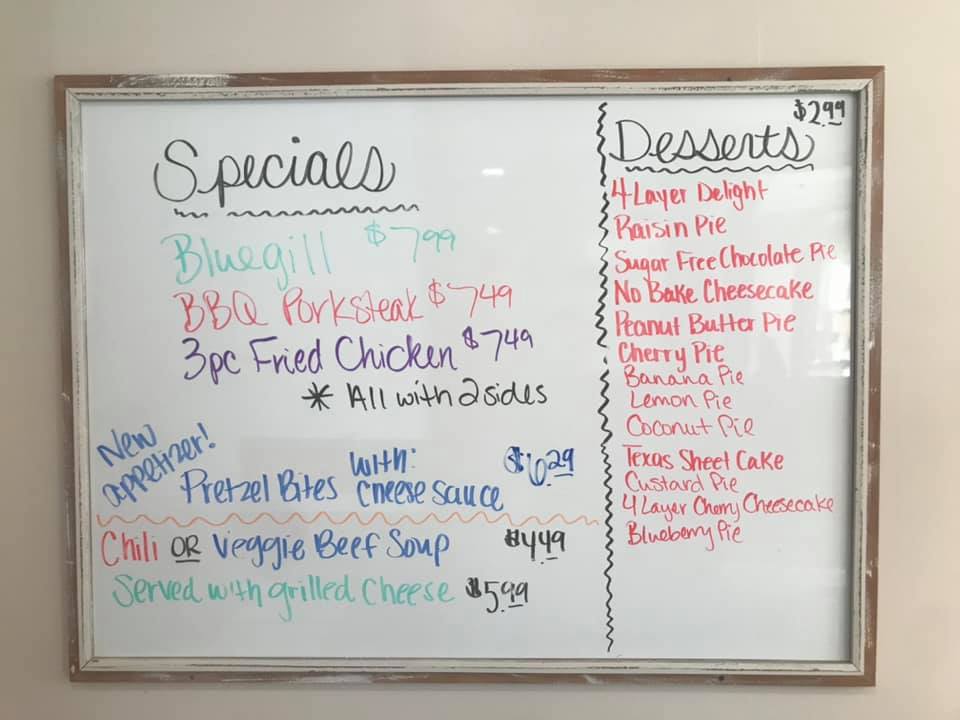 Specials
Bluegill $7.99
BBQ Porksteak $7.49
3pc Fried Chicken $7.49
* All with 2 sides
New appetizer!
Pretzel Bites with: cheese sauce $6.29
Chili OR Veggie Beef Soup $4.49
Served with grilled Cheese $5.99
$2.99
Desserts
4 Layer Delight
Raisin Pie
Sugar Free Chocolate Pie
No Bake Cheesecake
Peanut Butter Pie
Cherry Pie
Banana Pie
Lemon Pie
Coconut Pie
Texas Sheet Cake
Custard Pie
4 Layer Cherry Cheesecake
Blueberry Pie